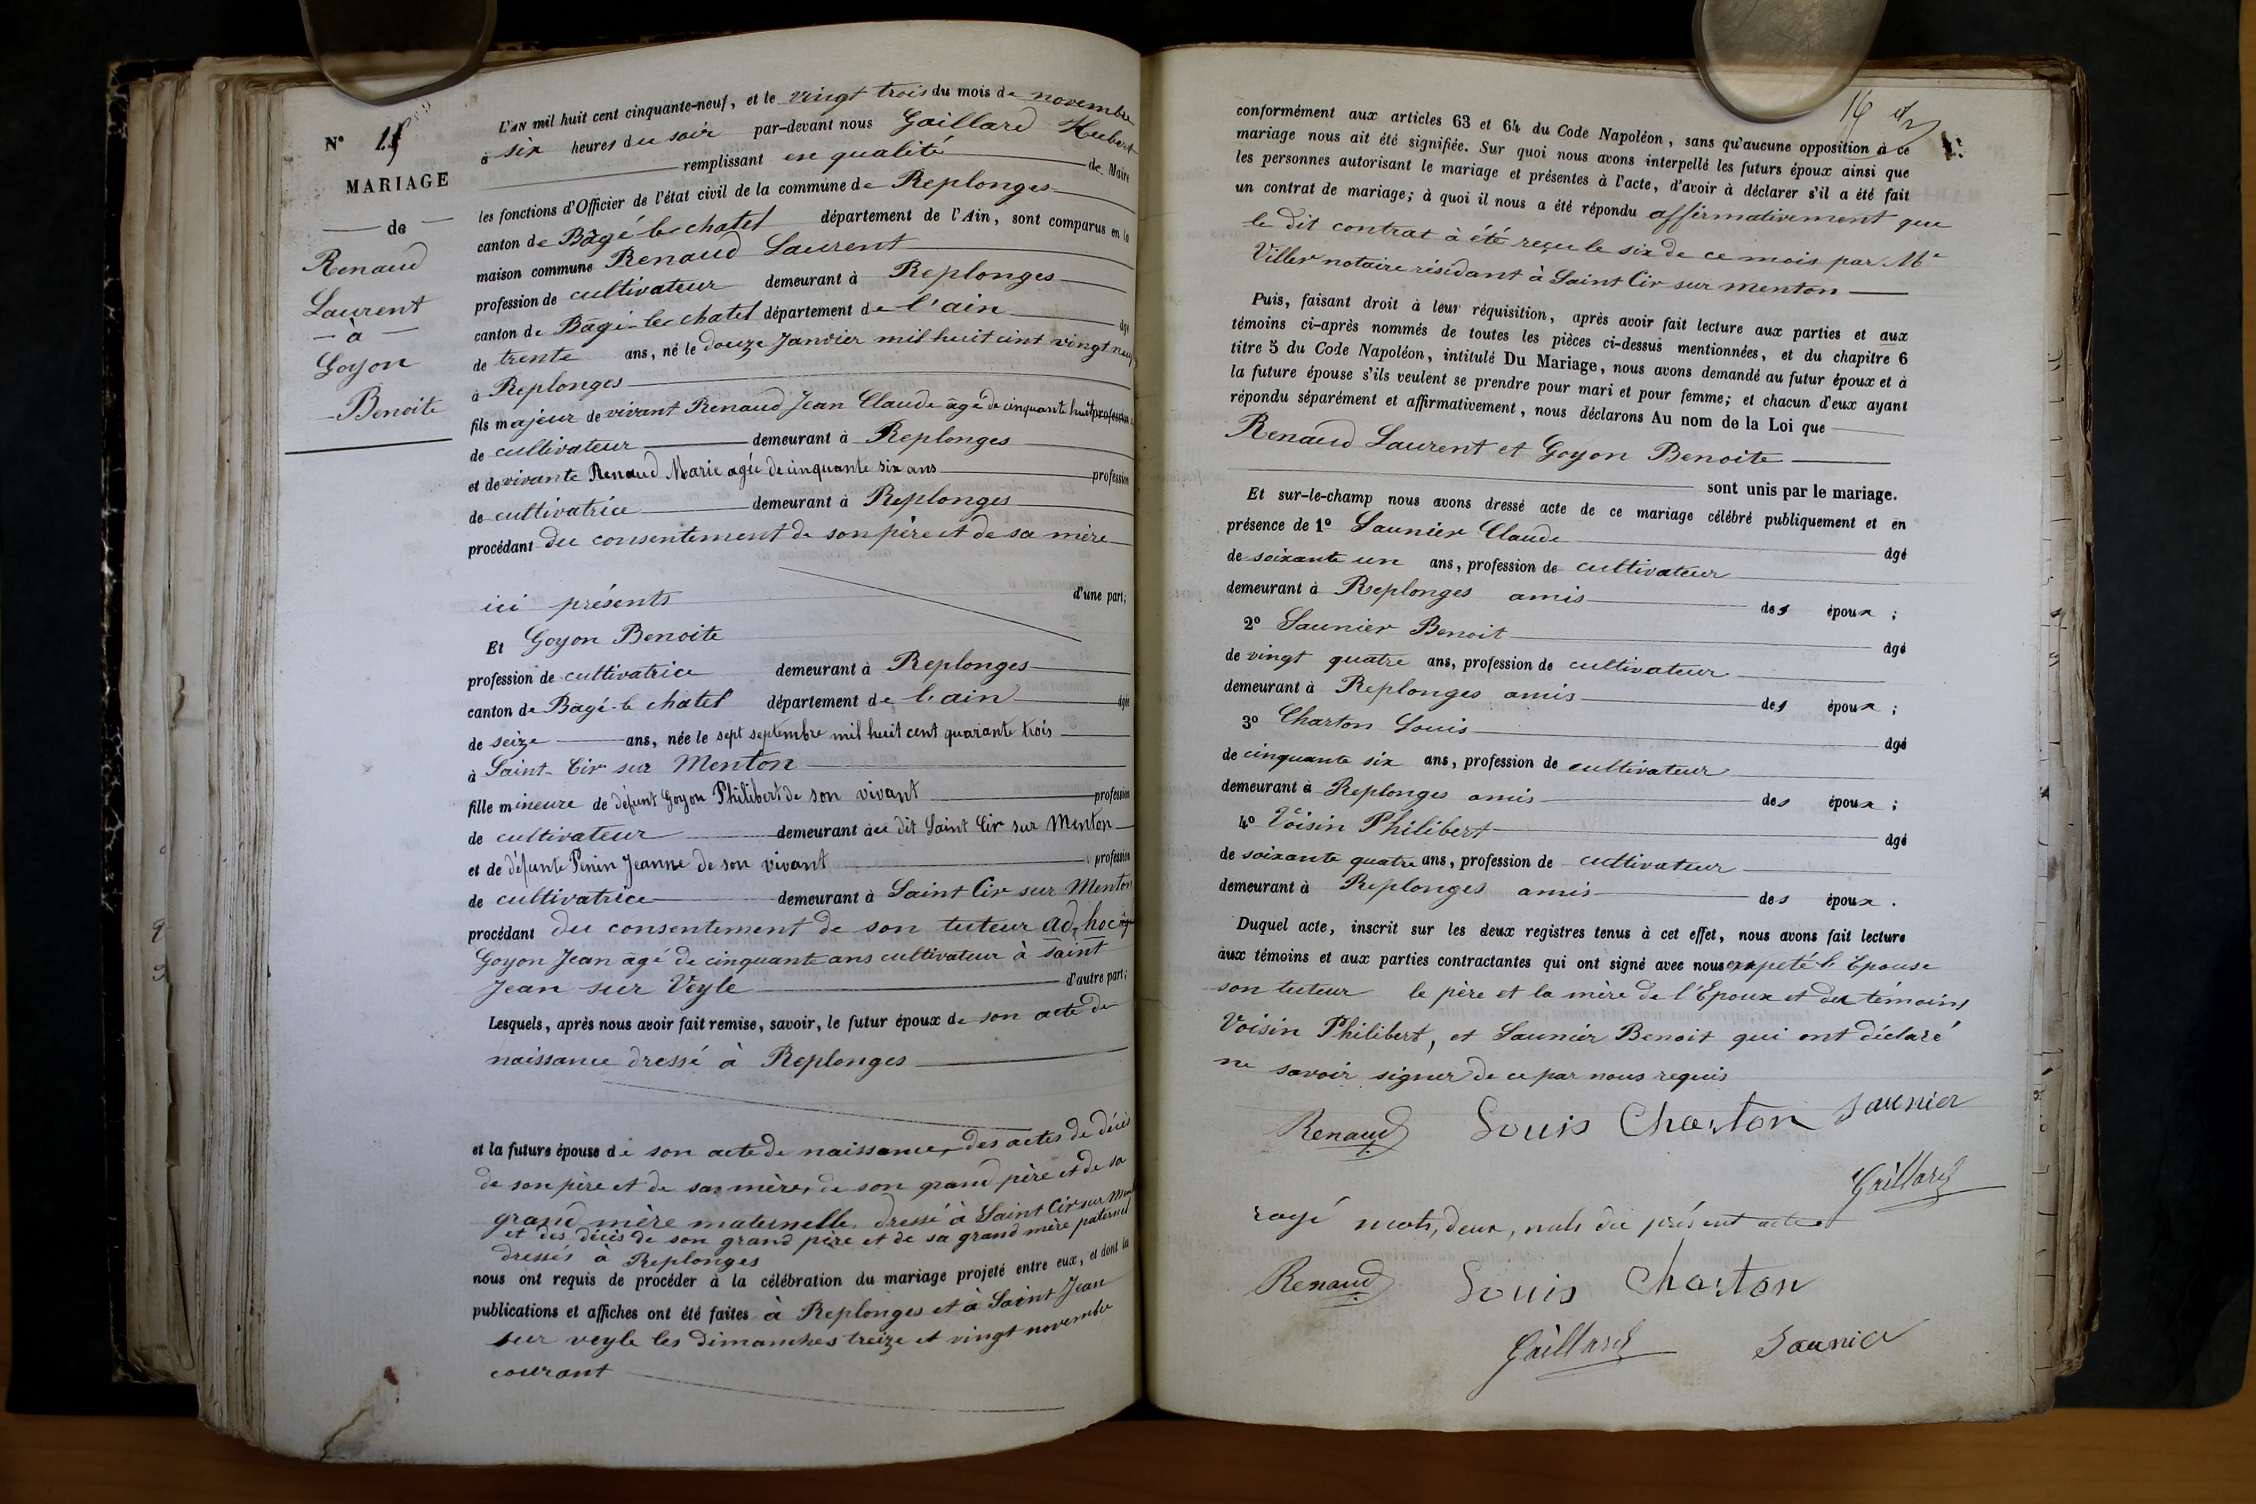 N° 15
MARIAGE
de
Renaud
Laurent
à
Goyon
Benoite
L'AN mil huit cent cinquante-neuf, et le vingt trois du mois de novembre
à six heures du soir par-devant nous Gaillard Hubert
remplissant en qualité de Maire
les fonctions d'Officier de l'état civil de la commune de Replonges
canton de Bâgé le chatel département de l'Ain, sont comparus en la
maison commune Renaud Laurent
profession de cultivateur demeurant à Replonges
canton de Bâgé-le chatel département de l'ain âgé
de trente ans, né le douze Janvier mil huit cent vingt neuf
à Replonges
fils majeur de vivant Renaud Jean Claude âgé de cinquante huit profession
de cultivateur demeurant à Replonges
et de vivante Renaud Marie agée de cinquante six ans profession
de cultivatrice demeurant à Replonges
procédant du consentement de son père et de sa mère
ici présents d'une part;
Et Goyon Benoite
profession de cultivatrice demeurant à Replonges
canton de Bâgé-le chatel département de l'ain âgée
de seize ans, née le sept septembre mil huit cent quarante trois
à Saint-Cir sur Menton
fille mineure de défunt Goyon Philibert de son vivant profession
de cultivateur demeurant au dit Saint Cir sur Menton
et de défunte Penin Jeanne de son vivant profession
de cultivatrice demeurant à Saint Cir sur Menton
procédant du consentement de son tuteur ad-hoc
Goyon Jean agé de cinquante ans cultivateur à Saint
Jean sur Veyle d'autre part;
Lesquels, après nous avoir fait remise, savoir, le futur époux de son acte de
naissance dressé à Replonges
et la future épouse de son acte de naissance, des actes de décès
de son père et de sa mère, de son grand père et de sa
grand mère maternelle dressé à Saint Cir sur Menton
et des décès de son grand père et de sa grand mère paternel
dressés à Replonges
nous ont requis de procéder à la célébration du mariage projeté entre eux, et dont les
publications et affiches ont été faites à Replonges et à Saint Jean
sur veyle les dimanches treize et vingt novembre
courant
conformément aux articles 63 et 64 du Code Napoléon, sans qu'aucune opposition à ce
mariage nous ait été signifiée. Sur quoi nous avons interpellé les futurs époux ainsi que
les personnes autorisant le mariage et présentes à l'acte, d'avoir à déclarer s'il a été fait
un contrat de mariage; à quoi il nous a été répondu affirmativement que
le dit contrat à été reçu le six de ce mois par Me
Viller notaire résidant à Saint Cir sur menton
Puis, faisant droit à leur réquisition, après avoir fait lecture aux parties et aux
témoins ci-après nommés de toutes les pièces ci-dessus mentionnées, et du chapitre 6
titre 5 du Code Napoléon, intitulé Du Mariage, nous avons demandé au futur époux et à
la future épouse s'ils veulent se prendre pour mari et pour femme; et chacun d'eux ayant
répondu séparément et affirmativement, nous déclarons Au nom de la Loi que
Renaud Laurent et Goyon Benoite
sont unis par le mariage.
Et sur-le-champ nous avons dressé acte de ce mariage célébré publiquement et en
présence de 1° Saunier Claude âgé
de soixante un ans, profession de cultivateur
demeurant à Replonges amis des époux ;
2° Saunier Benoit âgé
de vingt quatre ans, profession de cultivateur
demeurant à Replonges amis des époux ;
3° Charton Louis âgé
de cinquante six ans, profession de cultivateur
demeurant à Replonges amis des époux ;
4° Voisin Philibert âgé
de soixante quatre ans, profession de cultivateur
demeurant à Replonges amis des époux .
Duquel acte, inscrit sur les deux registres tenus à cet effet, nous avons fait lecture
aux témoins et aux parties contractantes qui ont signé avec nous expeté l'Epouse
son tuteur le père et la mère de l'Epoux et des témoins
Voisin Philibert, et Saunier Benoit qui ont déclaré
ne savoir signer de ce par nous requis
Renaud Louis Charton Saunier
Gaillard
rayé mots, deux, nuls du présent acte
Renaud Louis Charton
Gaillard Saunier